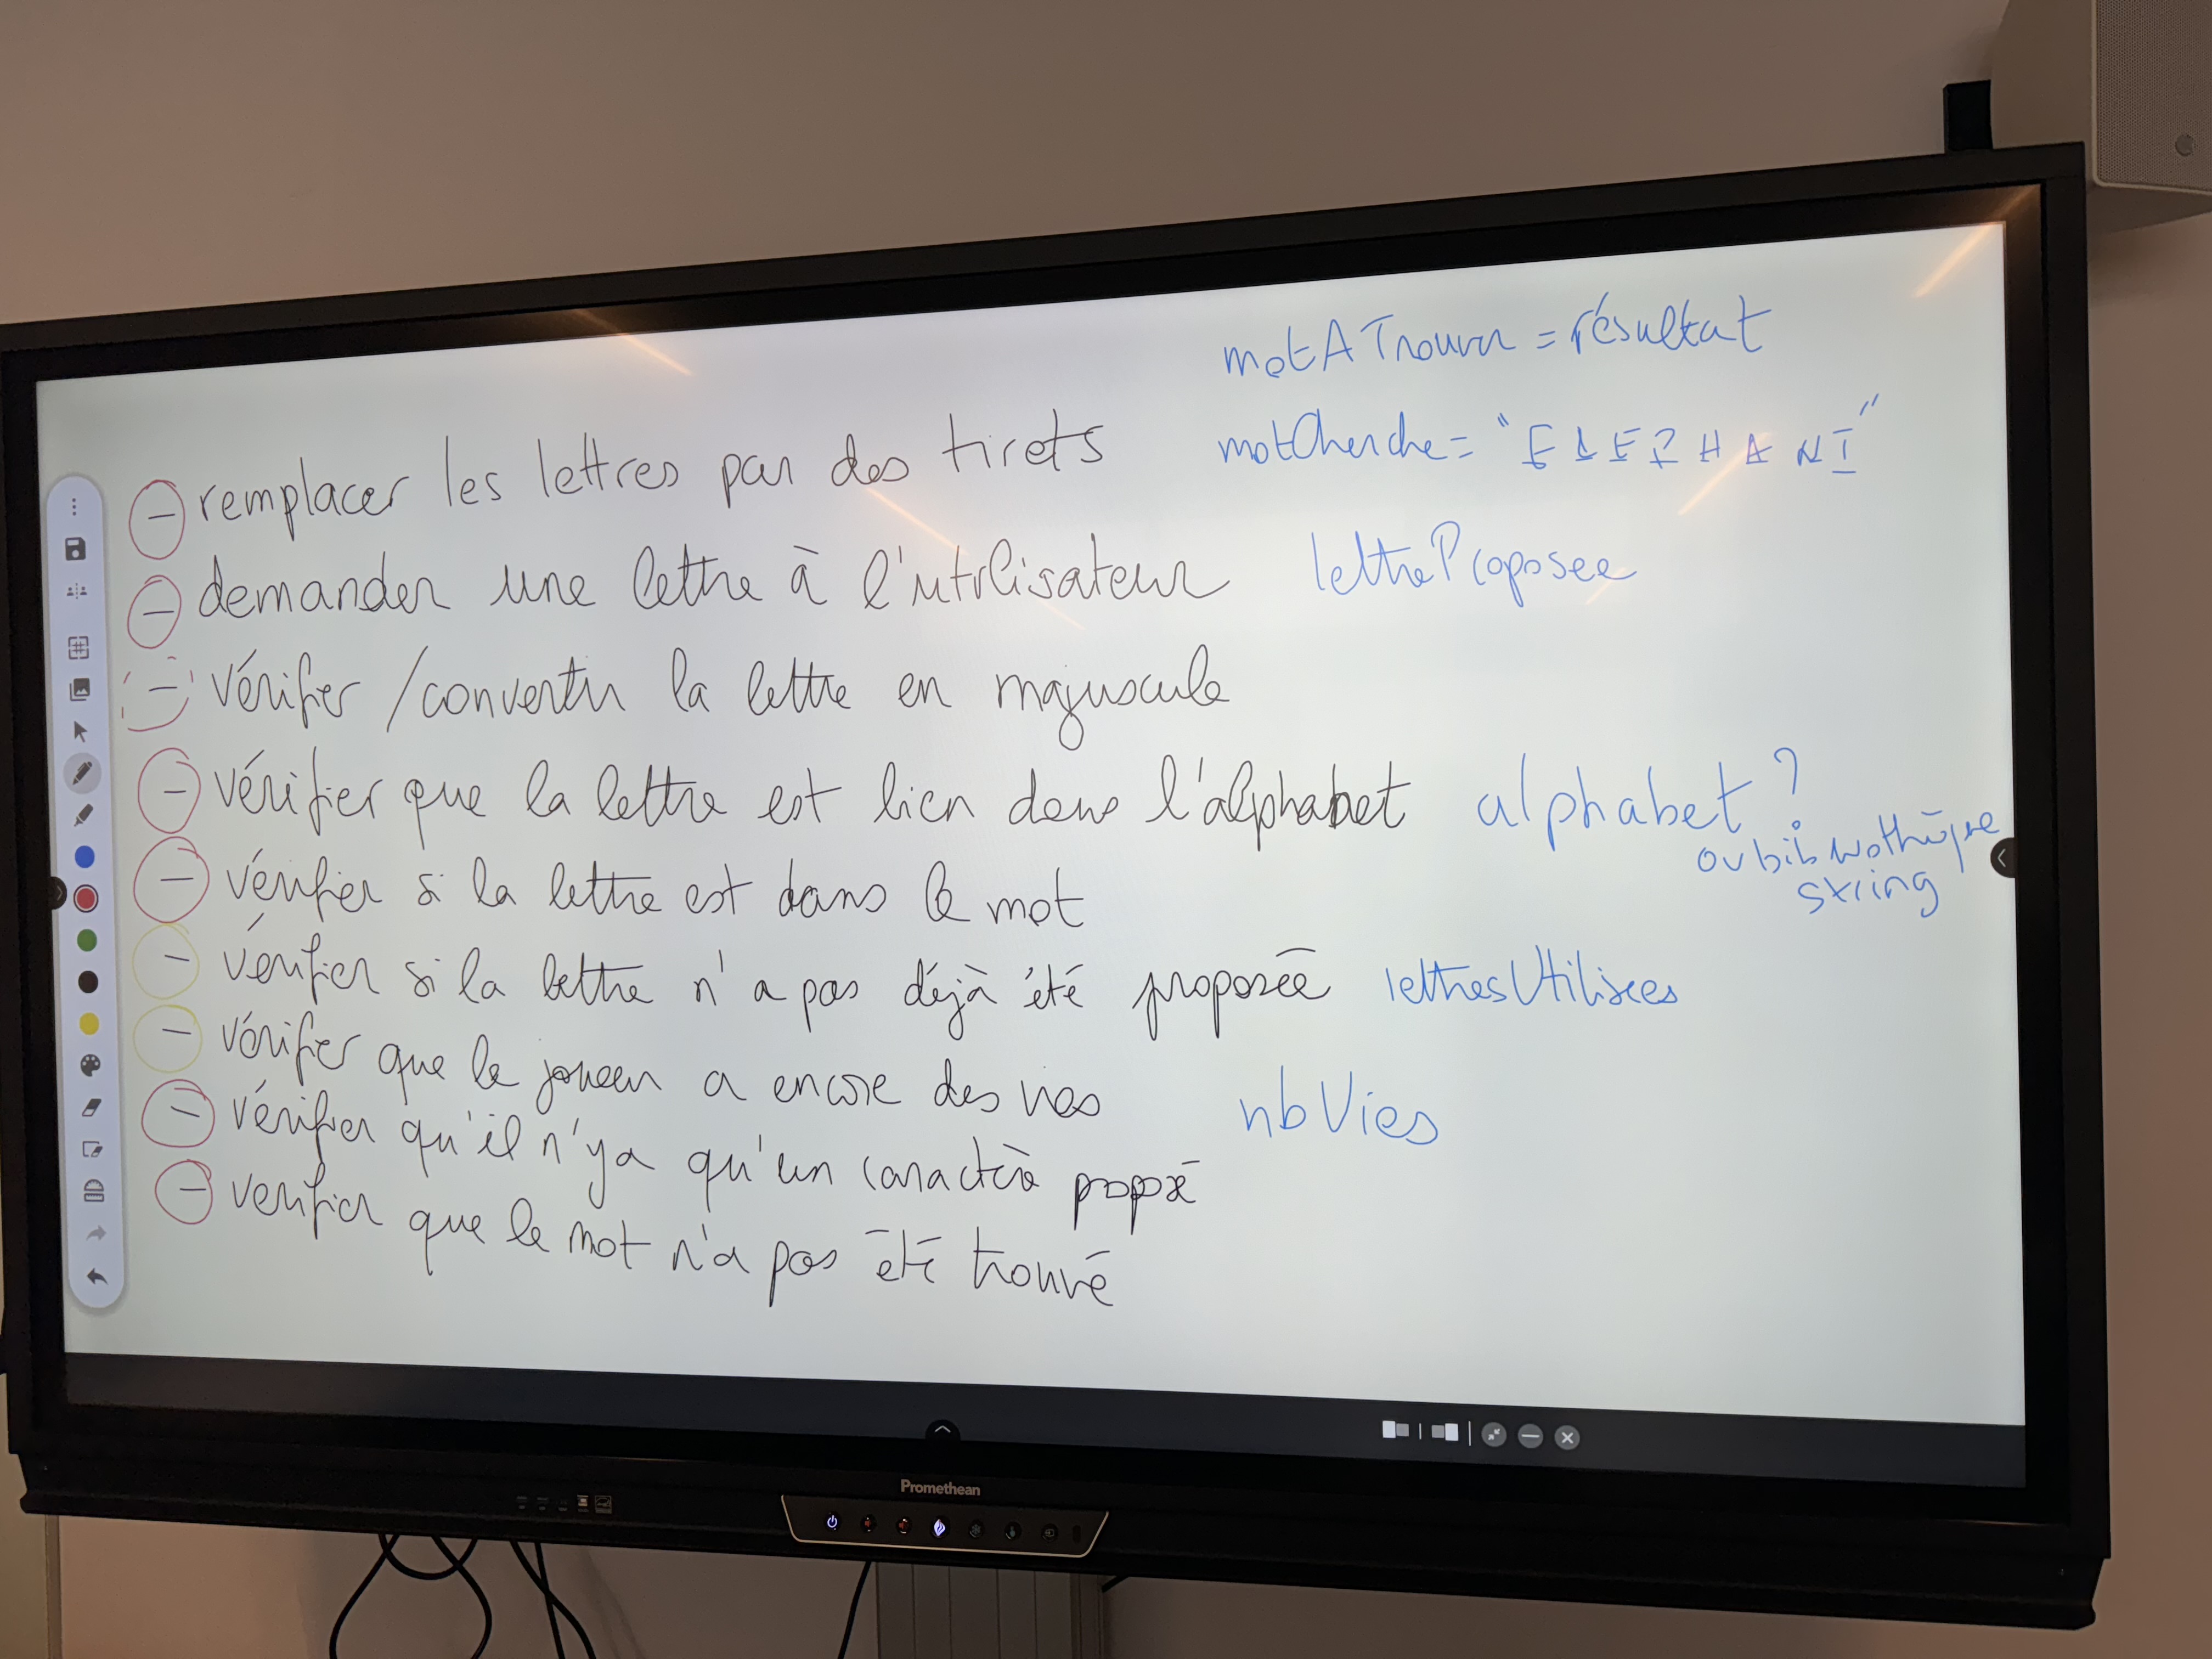 motATrouver = résultat
- remplacer les lettres par des tirets
motCherche = "
- demander une lettre à l'utilisateur lettreProposee
- vérifier / convertir la lettre en majuscule
- vérifier que la lettre est bien dans l'alphabet alphabet ?
ou bibliothèque
string
- vérifier si la lettre est dans le mot
- vérifier si la lettre n'a pas déjà été proposée lettresUtilisees
- vérifier que le joueur a encore des vies nbVies
- vérifier qu'il n'y a qu'un caractère proposé
- verifier que le mot n'a pas été trouvé
Promethean